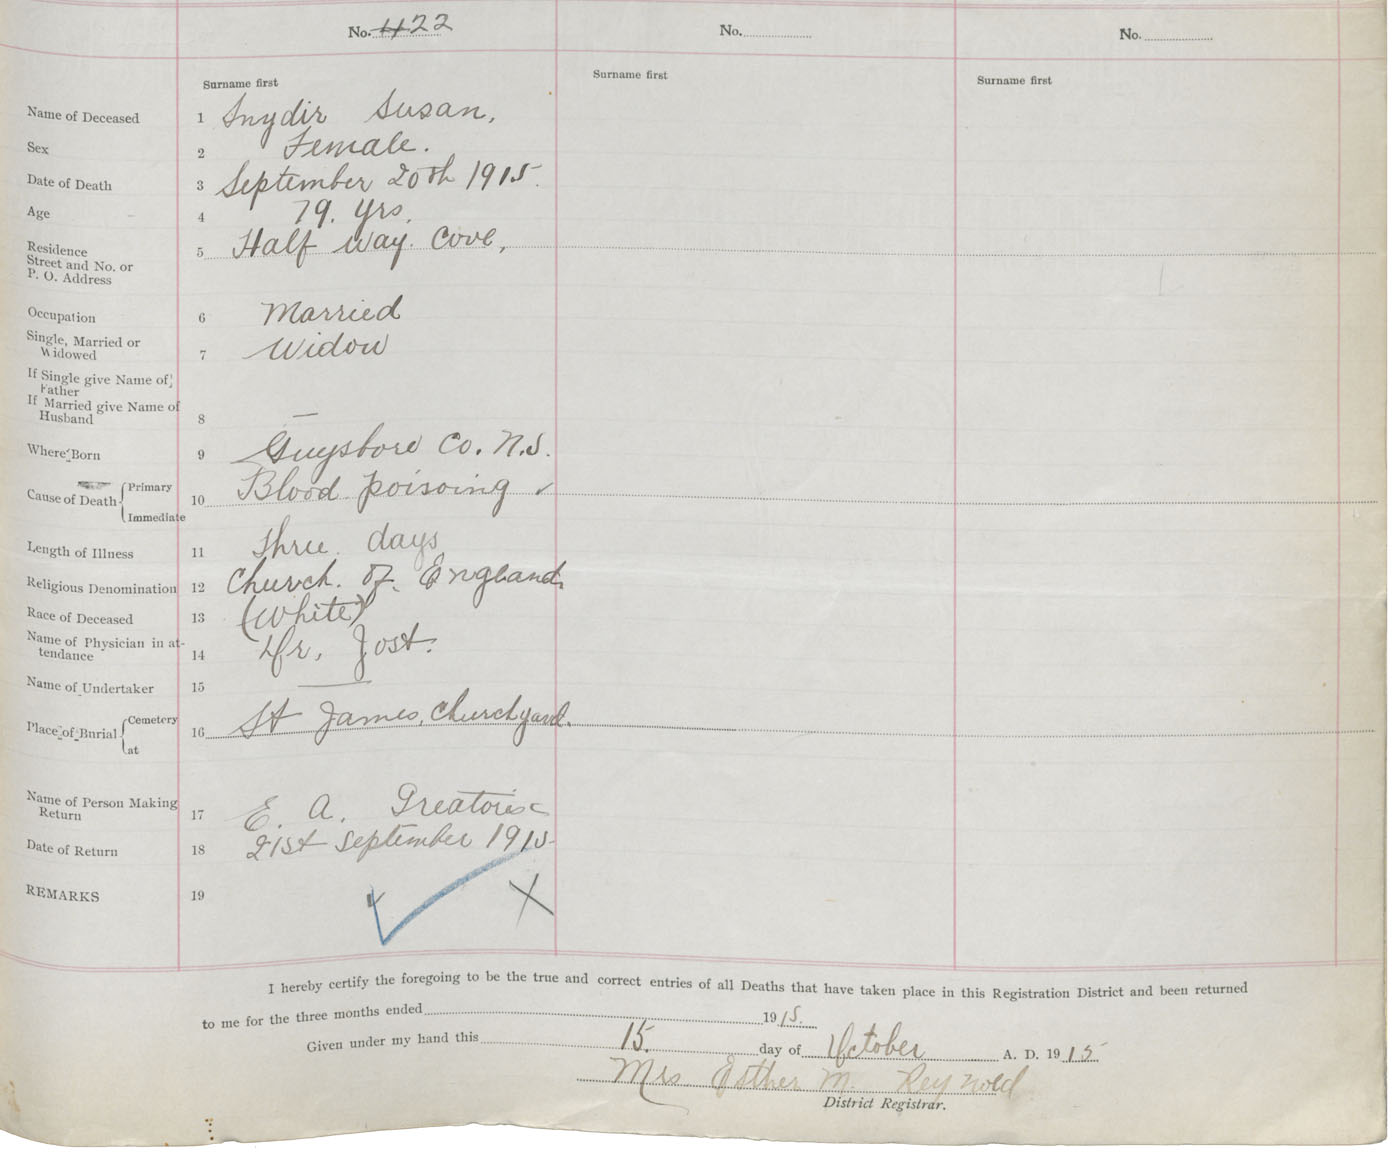 No. 422 No. No.
Surname first Surname first Surname first
Name of Deceased 1 Snydir Susan,
Sex 2 Female.
Date of Death 3 September 20th 1915.
Age 4 79. yrs.
Residence 5 Half Way. Cove,
Street and No. or
P. O. Address
Occupation 6 Married
Single, Married or
Widowed 7 Widow
If Single give Name of
Father
If Married give Name of
Husband 8 —
Where Born 9 Guysboro Co. N.S.
Cause of Death { Primary 10 Blood poisoing
Immediate
Length of Illness 11 three. days
Religious Denomination 12 Church. of. England.
Race of Deceased 13 (White)
Name of Physician in at-
tendance 14 Dr, Jost.
Name of Undertaker 15 —
Place of Burial { Cemetery 16 St James, Churchyard.
at
Name of Person Making
Return 17 E. A. Greatorex
Date of Return 18 21st September 1915
REMARKS 19
I hereby certify the foregoing to be the true and correct entries of all Deaths that have taken place in this Registration District and been returned
to me for the three months ended 1915.
Given under my hand this 15. day of October A. D. 1915
Mrs Esther M. Reynold
District Registrar.